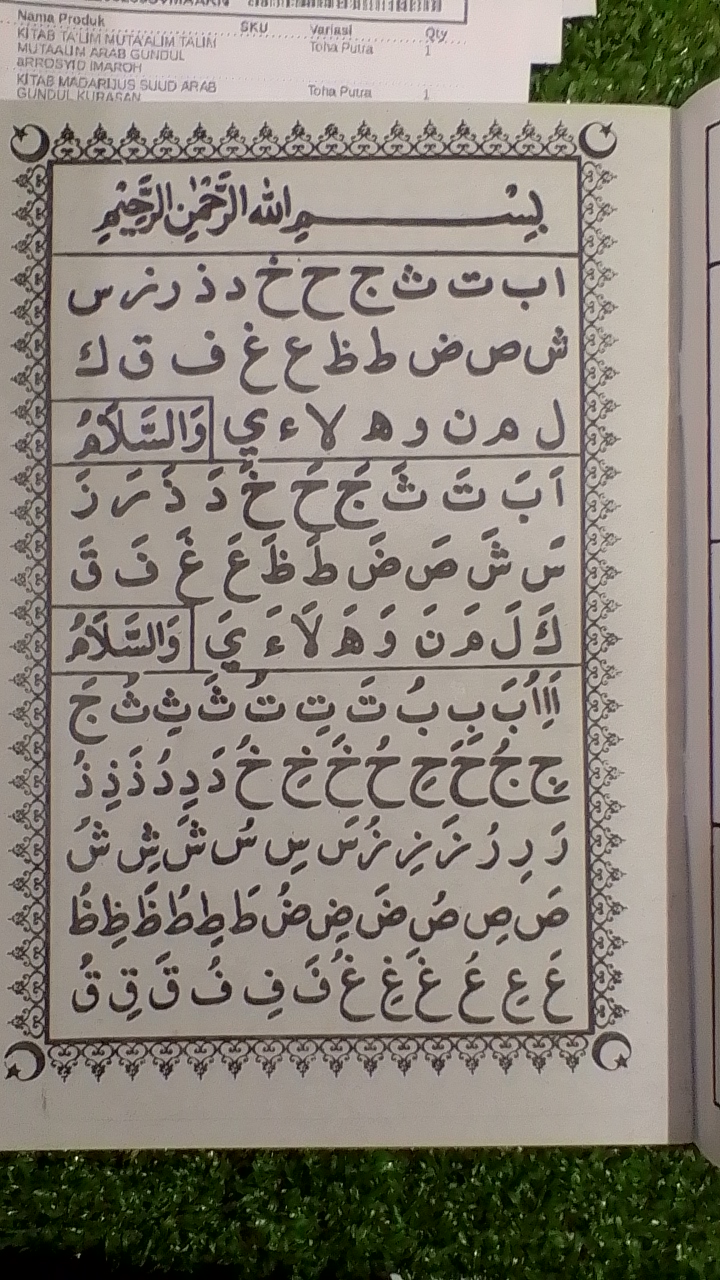 Nama Produk SKU Variasi Qty
KITAB TA'LIM MUTA'ALIM TALIM Toha Putra 1
MUTAALIM ARAB GUNDUL
aRROSYID IMAROH
KITAB MADARIJUS SUUD ARAB Toha Putra 1
GUNDUL KURASAN
بِسْمِ اللهِ الرَّحْمٰنِ الرَّحِيْمِ
ا ب ت ث ج ح خ د ذ ر ز س
ش ص ض ط ظ ع غ ف ق ك
ل م ن و ه لا ء ي وَالسَّلَامُ
اَ بَ تَ ثَ جَ حَ خَ دَ ذَ رَ زَ
سَ شَ صَ ضَ طَ ظَ عَ غَ فَ قَ
كَ لَ مَ نَ وَ هَ لَا ءَ يَ وَالسَّلَامُ
اَ اِ اُ بَ بِ بُ تَ تِ تُ ثَ ثِ ثُ جَ
جِ جُ حَ حِ حُ خَ خِ خُ دَ دِ دُ ذَ ذِ ذُ
رَ رِ رُ زَ زِ زُ سَ سِ سُ شَ شِ شُ
صَ صِ صُ ضَ ضِ ضُ طَ طِ طُ ظَ ظِ ظُ
عَ عِ عُ غَ غِ غُ فَ فِ فُ قَ قِ قُ